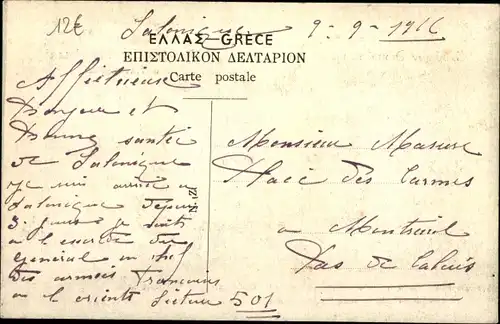 12€
Salonique 9-9-1916
ΕΛΛΑΣ-GRECE
ΕΠΙΣΤΟΛΙΚΟΝ ΔΕΛΤΑΡΙΟΝ
Carte postale
Affectueux
Bonjour et
Bonne santé
de Salonique
je suis arrivé a
Salonique depuis
3 jours je suis
a l'escorte du
general en chef
des armées Françaises
a le orient Secteur 501
Monsieur Masure
Place des Carmes
a Montreuil
Pas de Calais